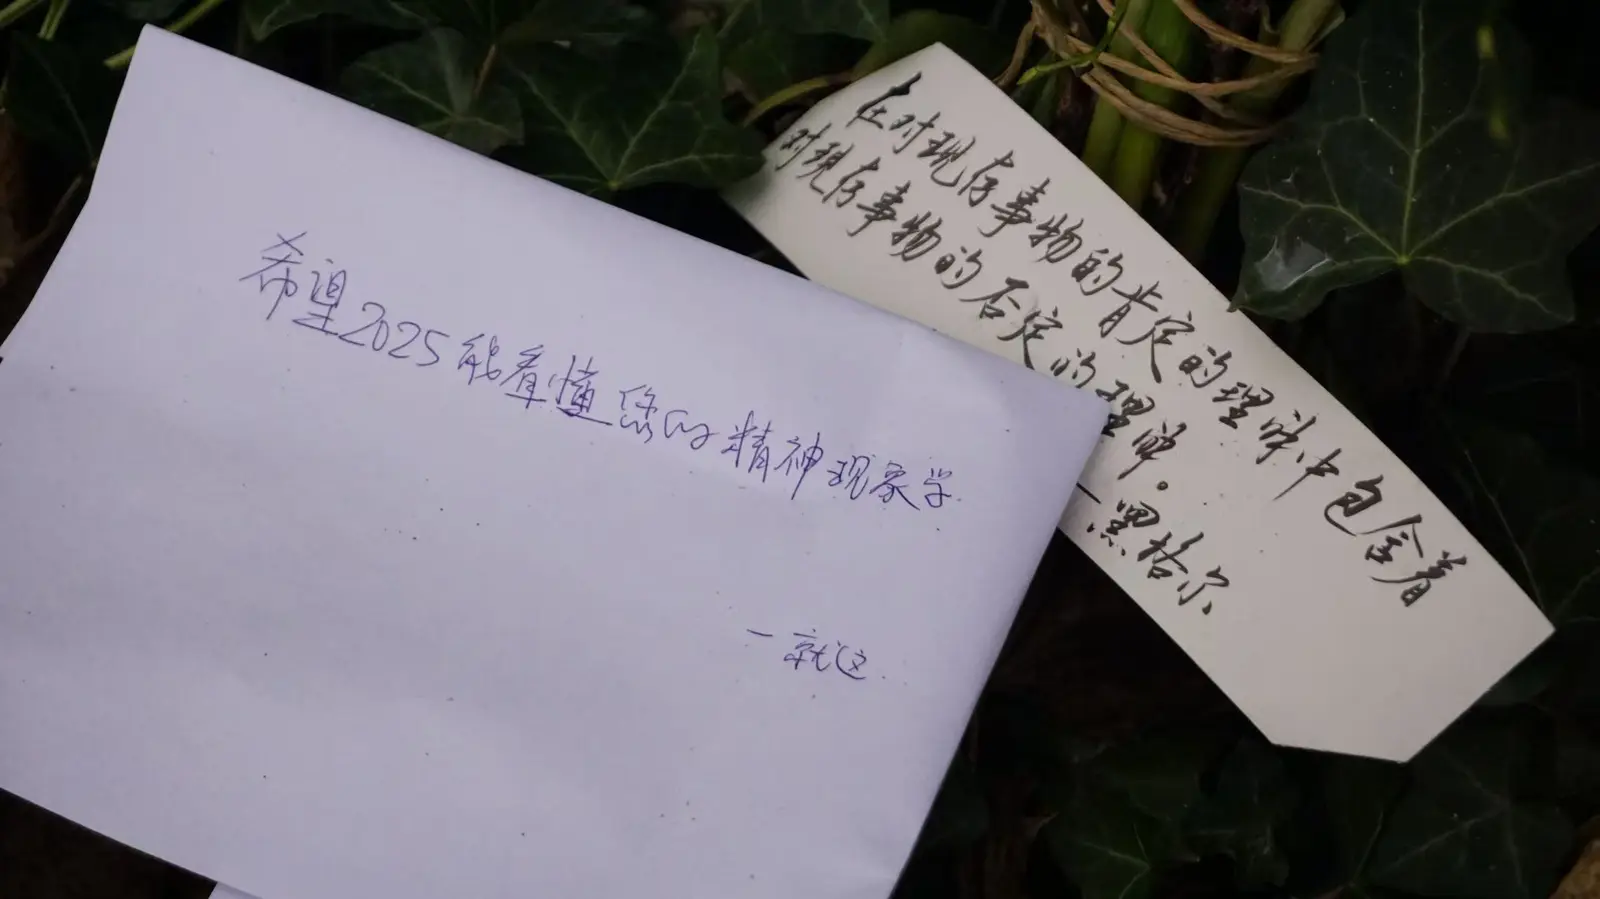 希望2025能看懂您的精神现象学
一就这
在对现存事物的肯定的理解中包含着
对现存事物的否定的理解。
一黑格尔